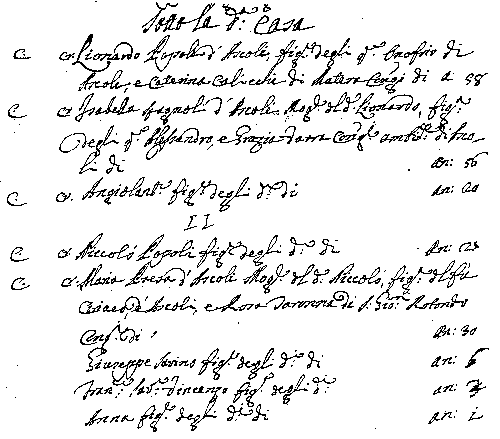 Sotto la d.ª Casa
C cr. Lionardo Popoli d'Ascoli, fig.º degli q.m Onofrio di
Ascoli, e Caterina di Matera Cong.i di a 58
C cr. Isabella d'Ascoli Mog.e del d.º Lionardo, fig.ª
degli q.m Alessandro, e Grazia Cong.i di Asco-
li di an: 56
C cr. Angiolant.ª fig.ª degli d.i di an: 20
II
C cr. Niccolò Popoli fig.º degli d.i di an: 25
C cr. Maria d'Ascoli Mog.e del d.º Niccolò, fig.ª del fù
d'Ascoli, e Rosa di S. Gio: Rotondo
Cong.i di an: 30
Giuseppe Savino fig.º degli d.i di an: 6
Fran.º Sav.º Vincenzo fig.º degli d.i an: 3
Anna fig.ª degli d.i di an: 1